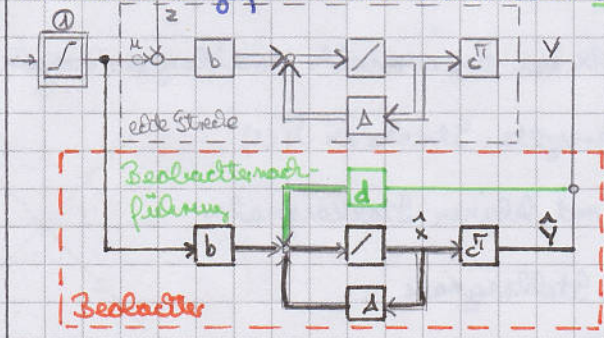 ①
z
0 1
u
b
A
cᵀ
y
echte Strecke
Beobachternach-
führung
d
b
x̂
cᵀ
ŷ
A
Beobachter